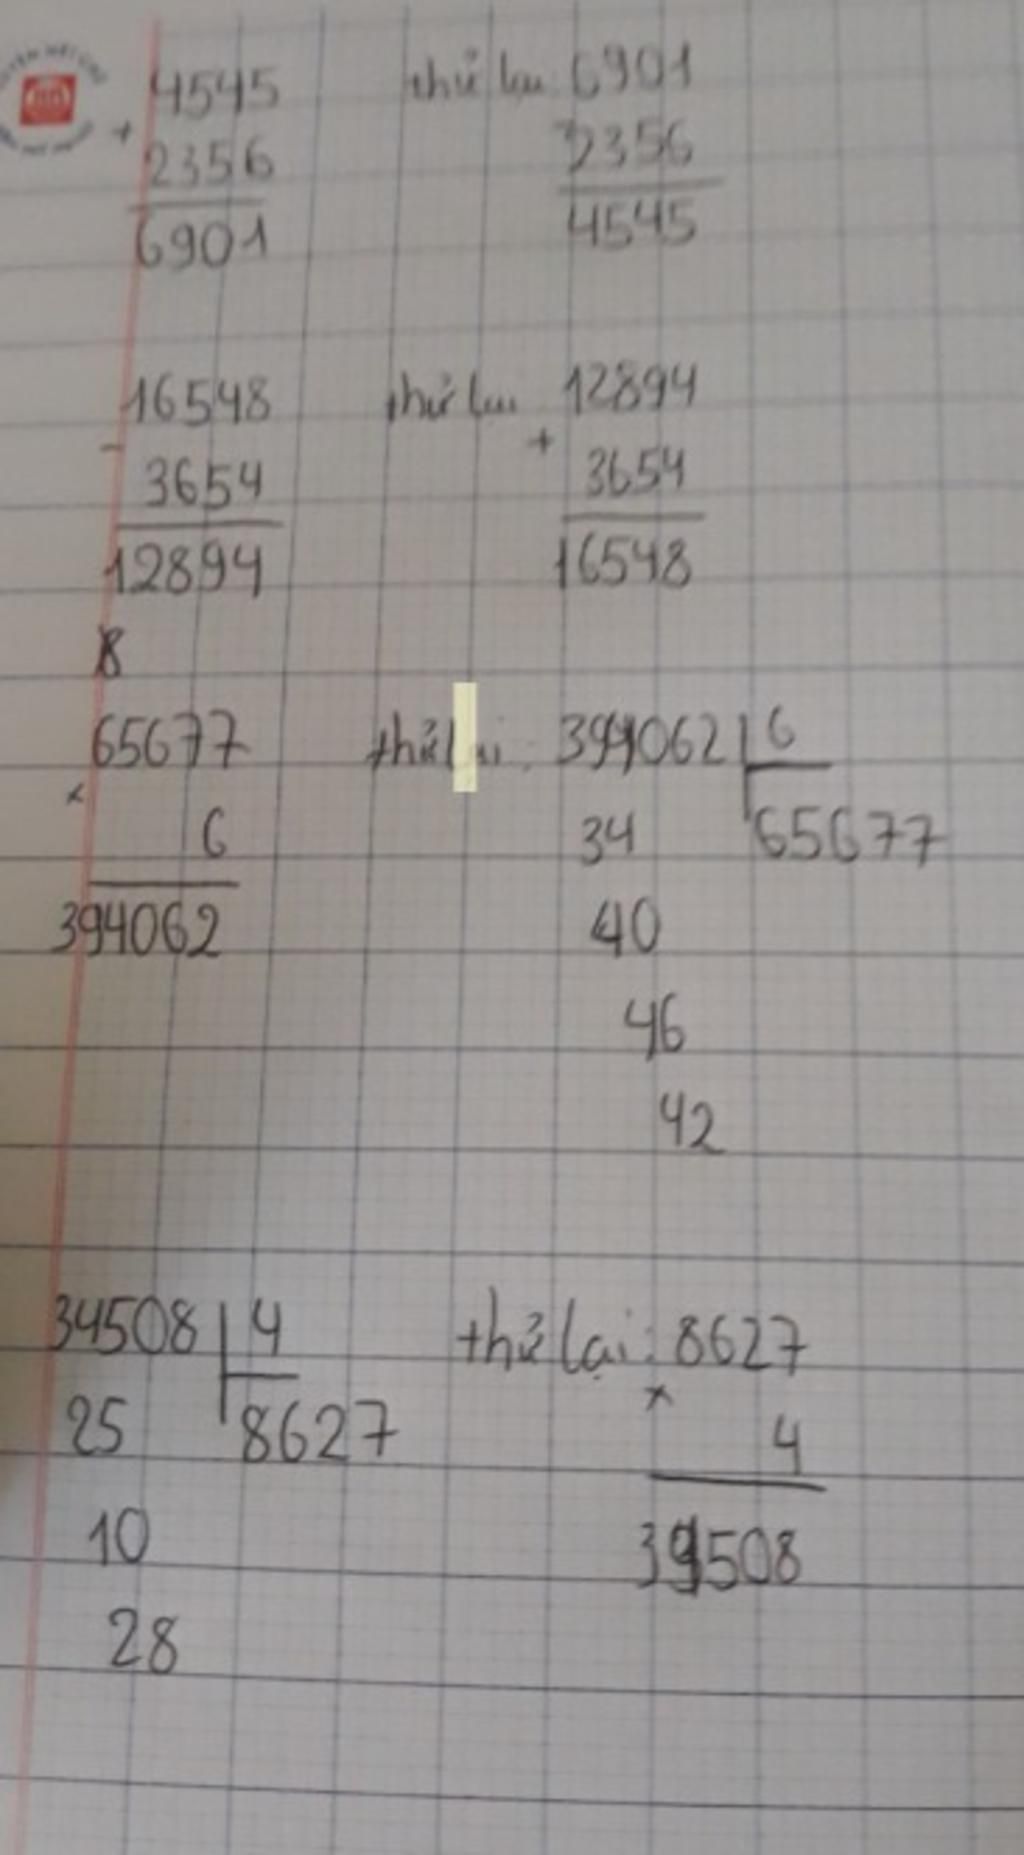 4545 thử lại: 6901
+
2356 2356
6901 4545
16548 thử lại 12894
- +
3654 3654
12894 16548
8
65677 thử lại: 394062 6
x
6 34 65677
394062 40
46
42
34508 4 thử lại: 8627
x
25 8627 4
10 34508
28